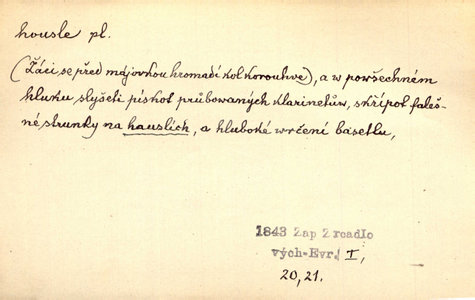 housle pl.
(Žáci se před májovkou hromadí kol korouhve), a w powšechném
hluku slyšeti pískot průbowaných klarinetůw, skřípot faleš-
né, strunky na hauslích, a hluboké wrčení basetlu,
1843 Zap Zrcadlo
vých-Evr. I,
20,21.